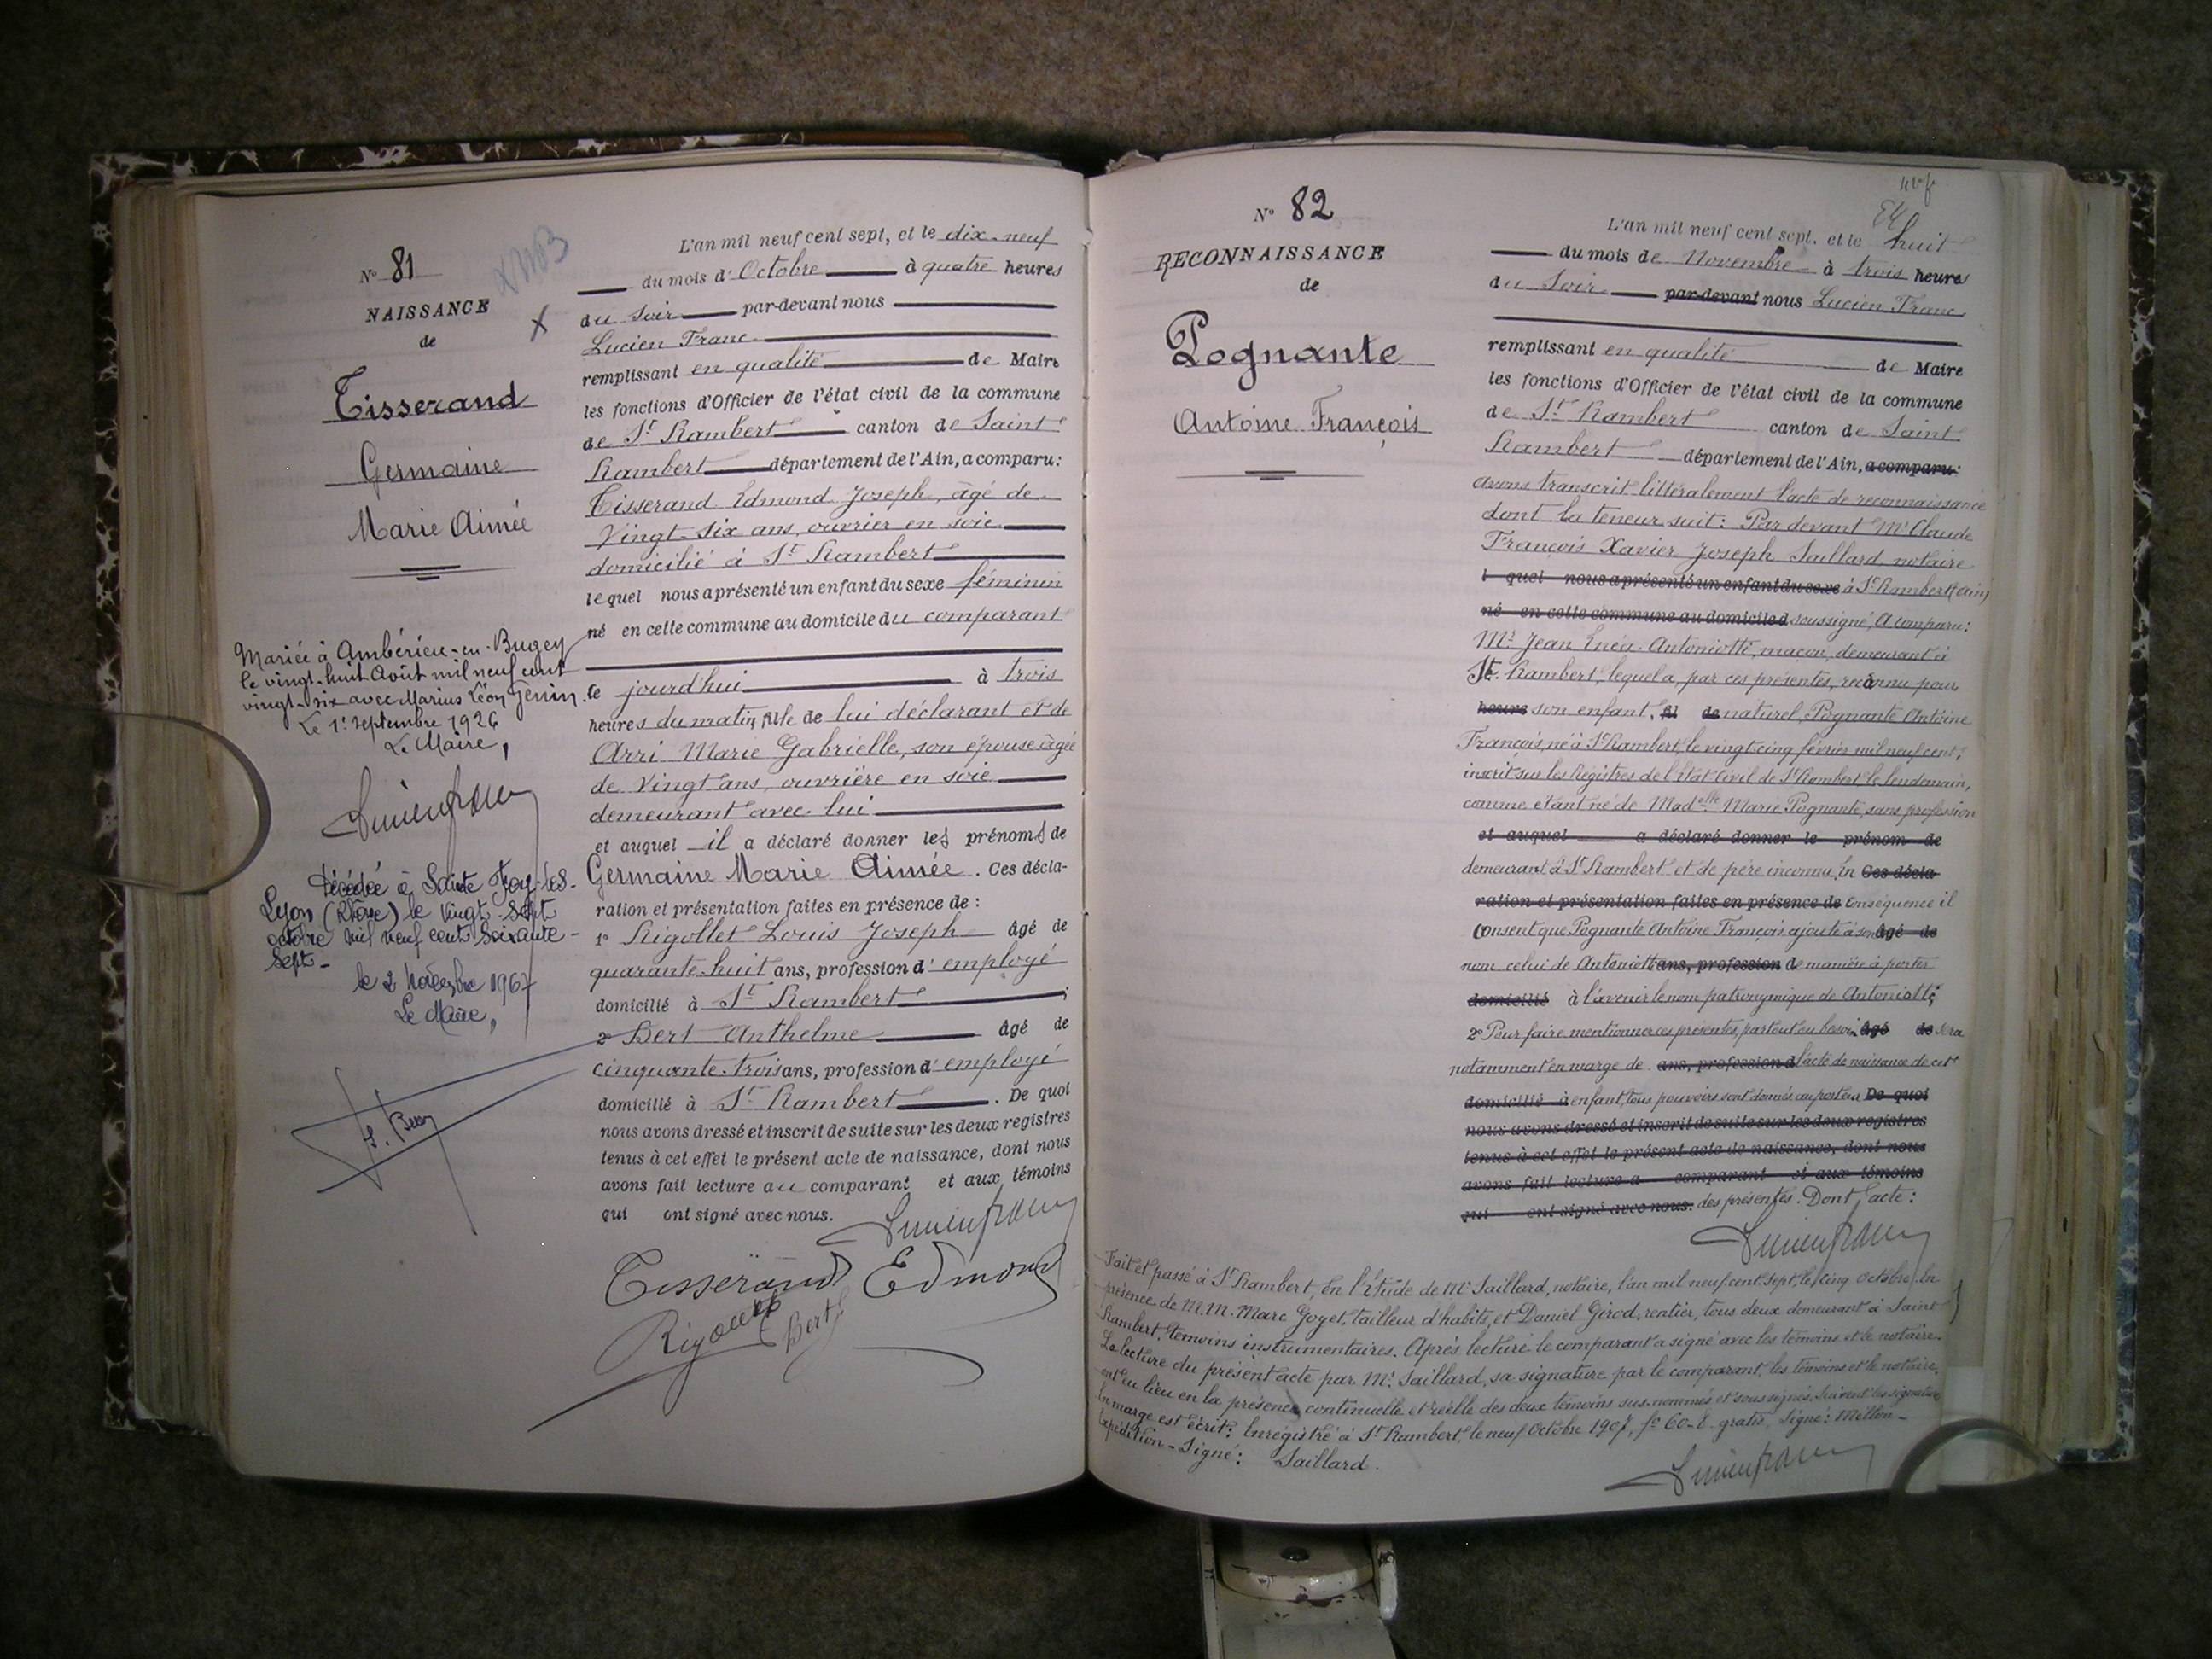 N° 81
NAISSANCE
de
Tisserand
Germaine
Marie Aimée
Mariée à Ambérieu-en-Bugey
le vingt-huit Août mil neuf cent
vingt-six avec Marius Léon Genin.
Le 1er Septembre 1926
Le Maire,
Décédée à Sainte Foy-lès-
Lyon (Rhône) le vingt-sept
octobre mil neuf cent soixante-
sept-
le 2 Novembre 1967
Le Maire,
L'an mil neuf cent sept, et le dix-neuf
du mois d'Octobre à quatre heures
du soir par-devant nous
Lucien Franc
remplissant en qualité de Maire
les fonctions d'Officier de l'état civil de la commune
de St Rambert canton de Saint
Rambert département de l'Ain, a comparu:
Tisserand Edmond Joseph, âgé de
Vingt-six ans, ouvrier en soie
domicilié à St Rambert
lequel nous a présenté un enfant du sexe féminin
né en cette commune au domicile du comparant
le jourd'hui à trois
heures du matin, fille de lui déclarant et de
Arri Marie Gabrielle, son épouse âgée
de Vingt ans, ouvrière en soie
demeurant avec lui
et auquel il a déclaré donner les prénoms de
Germaine Marie Aimée. Ces décla-
ration et présentation faites en présence de :
1° Rigollet Louis Joseph âgé de
quarante-huit ans, profession d'employé
domicilié à St Rambert ;
2° Bert Anthelme âgé de
cinquante-trois ans, profession d'employé
domicilié à St Rambert. De quoi
nous avons dressé et inscrit de suite sur les deux registres
tenus à cet effet le présent acte de naissance, dont nous
avons fait lecture au comparant et aux témoins
qui ont signé avec nous.
Lucien Franc
Tisserand Edmond
Rigollet Bert
N° 82
RECONNAISSANCE
de
Pognante
Antoine François
L'an mil neuf cent sept, et le huit
du mois de Novembre à trois heures
du Soir par-devant nous Lucien Franc
remplissant en qualité de Maire
les fonctions d'Officier de l'état civil de la commune
de St Rambert canton de Saint
Rambert département de l'Ain, a comparu:
avons transcrit littéralement l'acte de reconnaissance
dont la teneur suit: Par devant Me Claude
François Xavier Joseph Saillard, notaire
l quel nous a présenté un enfant du sexe à St Rambert (Ain)
né en cette commune au domicile d soussigné, A comparu:
Mr Jean Enéa Antoniotti, maçon, demeurant à
St. Rambert, lequel a, par ces présentes, reconnu pour
heure son enfant, fil de naturel, Pognante Antoine
François, né à St Rambert, le vingt cinq février mil neuf cent ;
inscrit sur les Registres de l'Etat Civil de St Rambert le lendemain,
comme étant né de Madelle Marie Pognante, sans profession
et auquel a déclaré donner le prénom de
demeurant à St Rambert et de père inconnu, En Ces décla-
ration et présentation faites en présence de Conséquence il
consent que Pognante Antoine François ajoute à son âgé de
nom celui de Antoniotti ans, profession de manière à porter
domicilié à l'avenir le nom patronymique de Antoniotti;
2° Pour faire mentionner ces présentes, partout ou besoin âgé de sera
notamment en marge de ans, profession d l'acte de naissance de cet
domicilié à enfant, tous pouvoirs sont donnés au porteur De quoi
nous avons dressé et inscrit de suite sur les deux registres
tenus à cet effet le présent acte de naissance, dont nous
avons fait lecture a comparant et aux témoins
qui ont signé avec nous. des présentes. Dont acte:
Lucien Franc
Fait et passé à St Rambert, En l'Etude de Me Saillard, notaire, l'an mil neuf cent sept, le cinq Octobre. En
présence de M.M. Marc Goyet, tailleur d'habits, et Daniel Girod, rentier, tous deux demeurant à Saint
Rambert, témoins instrumentaires. Après lecture le comparant a signé avec les témoins et le notaire.
La lecture du présent acte par Me Saillard, sa signature par le comparant, les témoins et le notaire,
ont eu lieu en la présence continuelle et réelle des deux témoins sus-nommés et soussignés. Suivent les signatures
En marge est écrit: Enregistré à St Rambert, le neuf Octobre 1907, fo 60-8. gratis. Signé: Millon-
Expédition - Signé: Saillard.
Lucien Franc